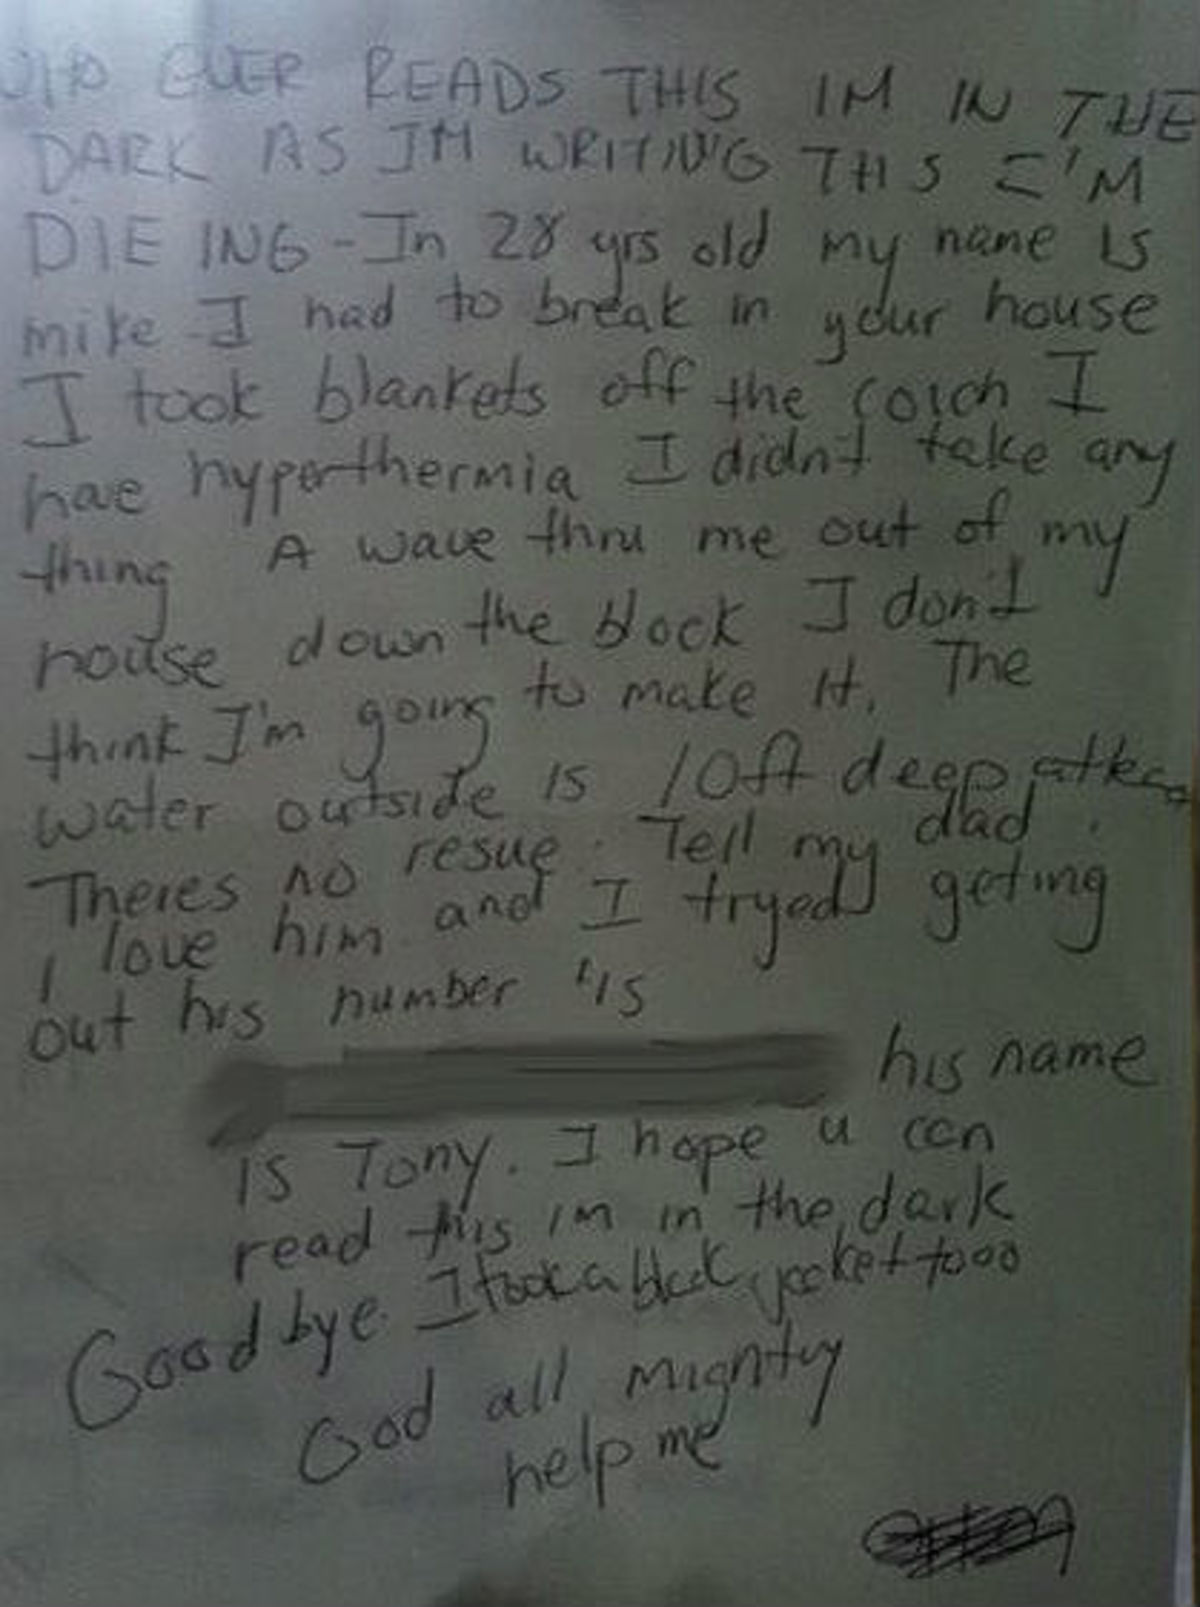 WHO EVER READS THIS IM IN THE
DARK AS IM WRITING THIS I'M
DIE ING - Im 28 yrs old my name is
mike I had to break in your house
I took blankets off the coich I
hae hyperthermia I didn't take any
thing A wave thru me out of my
house down the block I don't
think I'm going to make it. The
water outside is 10ft deep at lea
Theres no resue. Tell my dad
I love him and I tryed geting
out his number is
his name
is Tony. I hope u can
read this im in the dark
Good bye. I took a black jacket tooo
God all mighty
help me